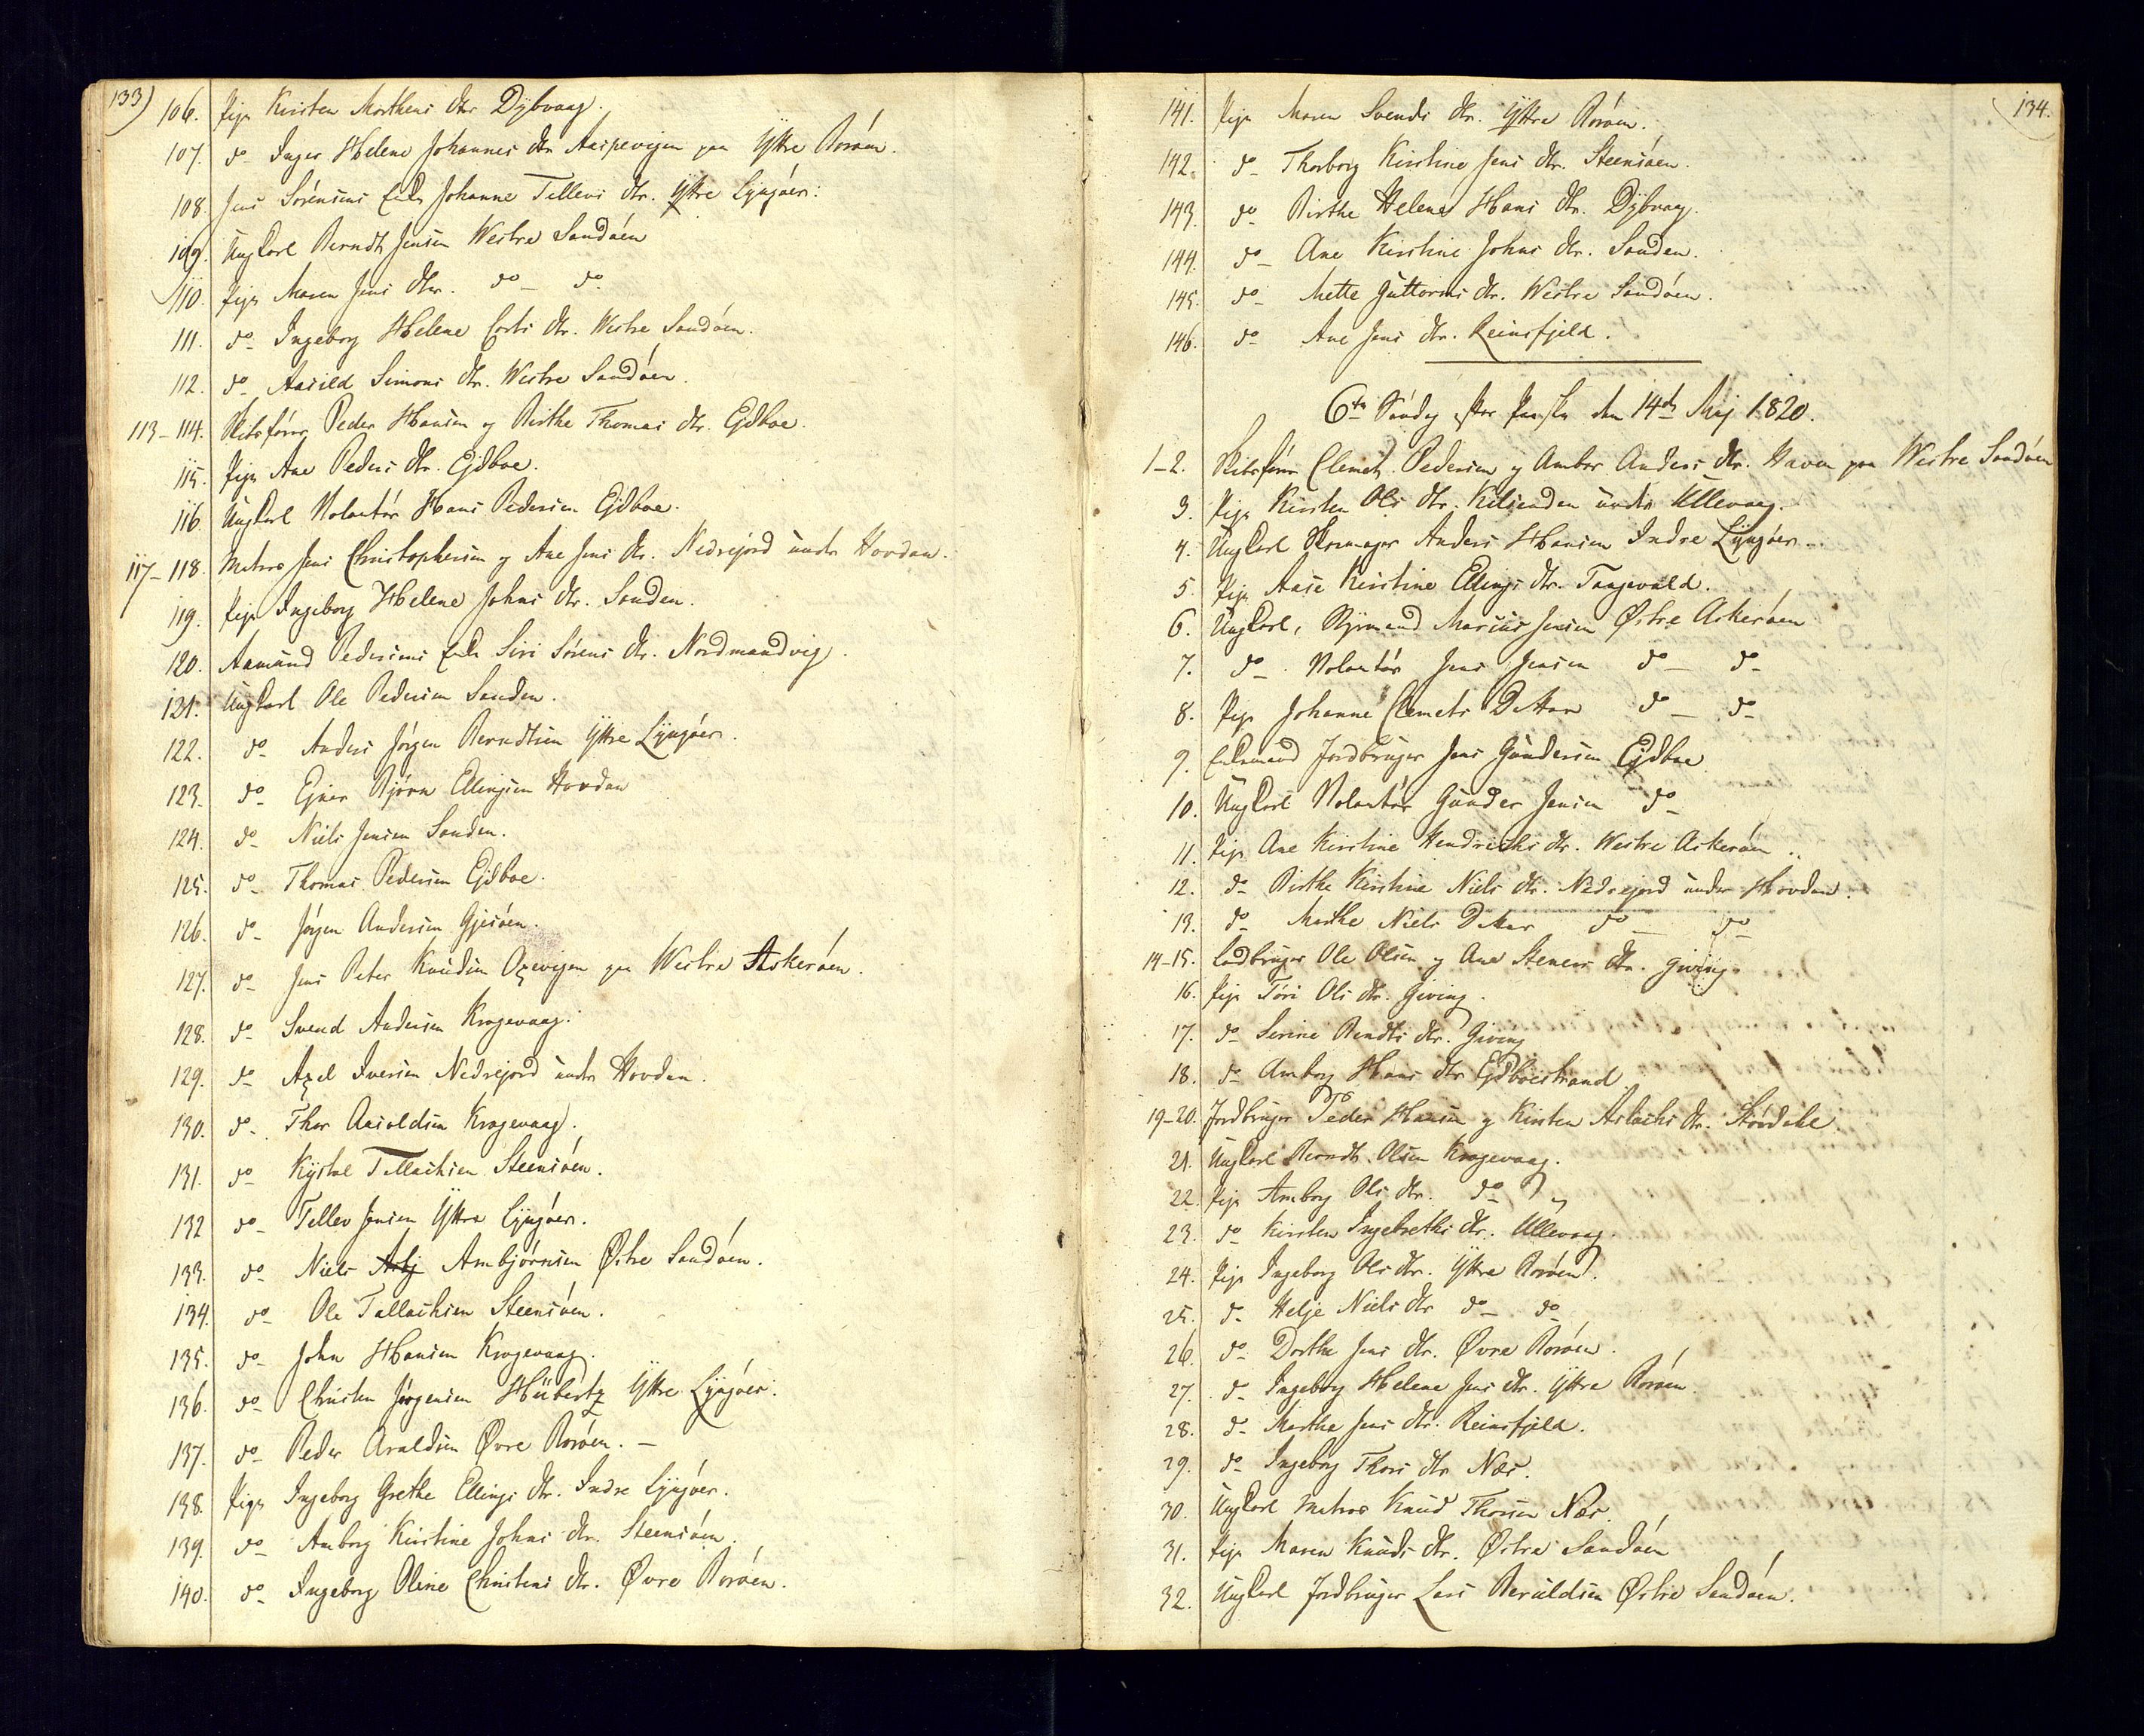 133)
106. Pige Kirsten Morthens dtr Dÿbvaag.
107. do Inger Helene Johannes dtr Aaspevigen paa Ÿttre Borøen.
108. Jens Sørensens Enke Johanne Tellevs dtr. Ÿttre Lÿngøer.
109. Ungkarl Berndt Jensen Westre Sandøen
110. Pige Maren Jens dtr. do do
111. do Ingeborg Helene Corts dtr. Westre Sandøen.
112. do Aasild Simons dtr. Westre Sandøen.
113–114. Skibsfører Peder Hansen og Birthe Thomas dtr. Ejdboe.
115. Pige Ane Peders dtr. Ejdboe.
116. Ungkarl Volontør Hans Pedersen Ejdboe.
117–118. Matros Jens Christophersen og Ane Jens dtr. Nedrejord under Hovdan.
119. Pige Ingeborg Helene Johns dtr. Sanden.
120. Aamund Pedersens Enke Siri Sørens dtr. Nordmandvig.
121. Ungkarl Ole Pedersen Sanden.
122. do Anders Jørgen Berndtsen Ÿttre Lÿngøer.
123. do Ejner Bjørn Ellingsen Hovdan
124. do Niels Jensen Sanden.
125. do Thomas Pedersen Ejdboe.
126. do Jørgen Andersen Gjesøen.
127. do Jens Peter Knudsen Oxevigen paa Westre Askerøen.
128. do Svend Andersen Krogevaag.
129. do Axel Iversen Nedrejord under Hovdan.
130. do Thor Aasoldsen Krogevaag.
131. do Kÿstol Tellachsen Steensøen.
132 do Tellev Jensen Ÿttre Lÿngøer.
133. do Niels Arbj Arnbjørnsen Østre Sandøen.
134. do Ole Tallachsen Steensøen.
135. do John Hansen Krogevaag.
136. do Christen Jørgensen Hübertz Ÿttre Lÿngøer.
137. do Peder Araldsen Øvre Borøen.
138. Pige Ingeborg Grethe Ellings dtr. Indre Lÿngøer.
139. do Amborg Kirstine Johns dtr. Steensøen.
140. do Ingeborg Oline Christens dtr. Øvre Borøen.
134.
141. Pige Maren Svends dtr. Ÿttre Borøen.
142. do Thorborg Kirstine Jens dtr. Steensøen.
143. do Birthe Helene Hans dtr. Dÿbvaag.
144. do Ane Kirstine Johns dtr. Sanden.
145. do Mette Guttorms dtr. Westre Sandøen.
146. do Ane Jens dtr. Reinsfjeld.
6te Søndag efter Paaske den 14de Maj 1820.
1–2. Skibsfører Clemet Pedersen og Ambor Anders dtr. Haven paa Westre Sandøen
3. Pige Kirsten Ols dtr. Kilsenden under Ullevaag.
4. Ungkarl Skoemager Anders Hansen Indre Lÿngøer.
5. Pige Aase Kirstine Ellings dtr. Tangevald.
6. Ungkarl, Styrmand Marcus Jensen Østre Askerøen
7. do Volontør Jens Jensen do do
8. Pige Johanne Clemets Datter do do
9. Enkemand Jordbruger Jens Gundersen Ejdboe
10. Ungkarl Volontør Gunder Jensen do
11. Pige Ane Kirstine Hendrichs dtr. Westre Askerøen.
12. do Birthe Kirstine Niels dtr. Nedrejord under Hovdan.
13. do Marthe Niels Datter do do
14–15. Jordbruger Ole Olsen og Ane Steners dtr. Giving.
16. Pige Tøri Ols dtr. Giving.
17. do Serine Bendts dtr. Giving
18. do Amborg Hans dtr Ejdboestrand
19–20. Jordbruger Peder Hansen og Kirsten Aslachs dtr. Støvdahl.
21. Ungkarl Berndt Olsen Krogevaag.
22. Pige Amborg Ols dtr. do
23. do Kirsten Ingebreths dtr. Ullevaag.
24. Pige Ingeborg Ols dtr. Ÿttre Borøen.
25. do Helje Niels dtr do do
26. do Dorthe Jens dtr. Øvre Borøen.
27. do Ingeborg Helene Jens dtr. Ÿttre Borøen.
28. do Marthe Jens dtr. Reinsfjeld.
29. do Ingeborg Thors dtr Næs.
30. Ungkarl Matros Knud Thorsen Næs.
31. Pige Maren Knuds dtr. Østre Sandøen
32. Ungkarl Jordbruger Lars Beruldsen Østre Sandøen.